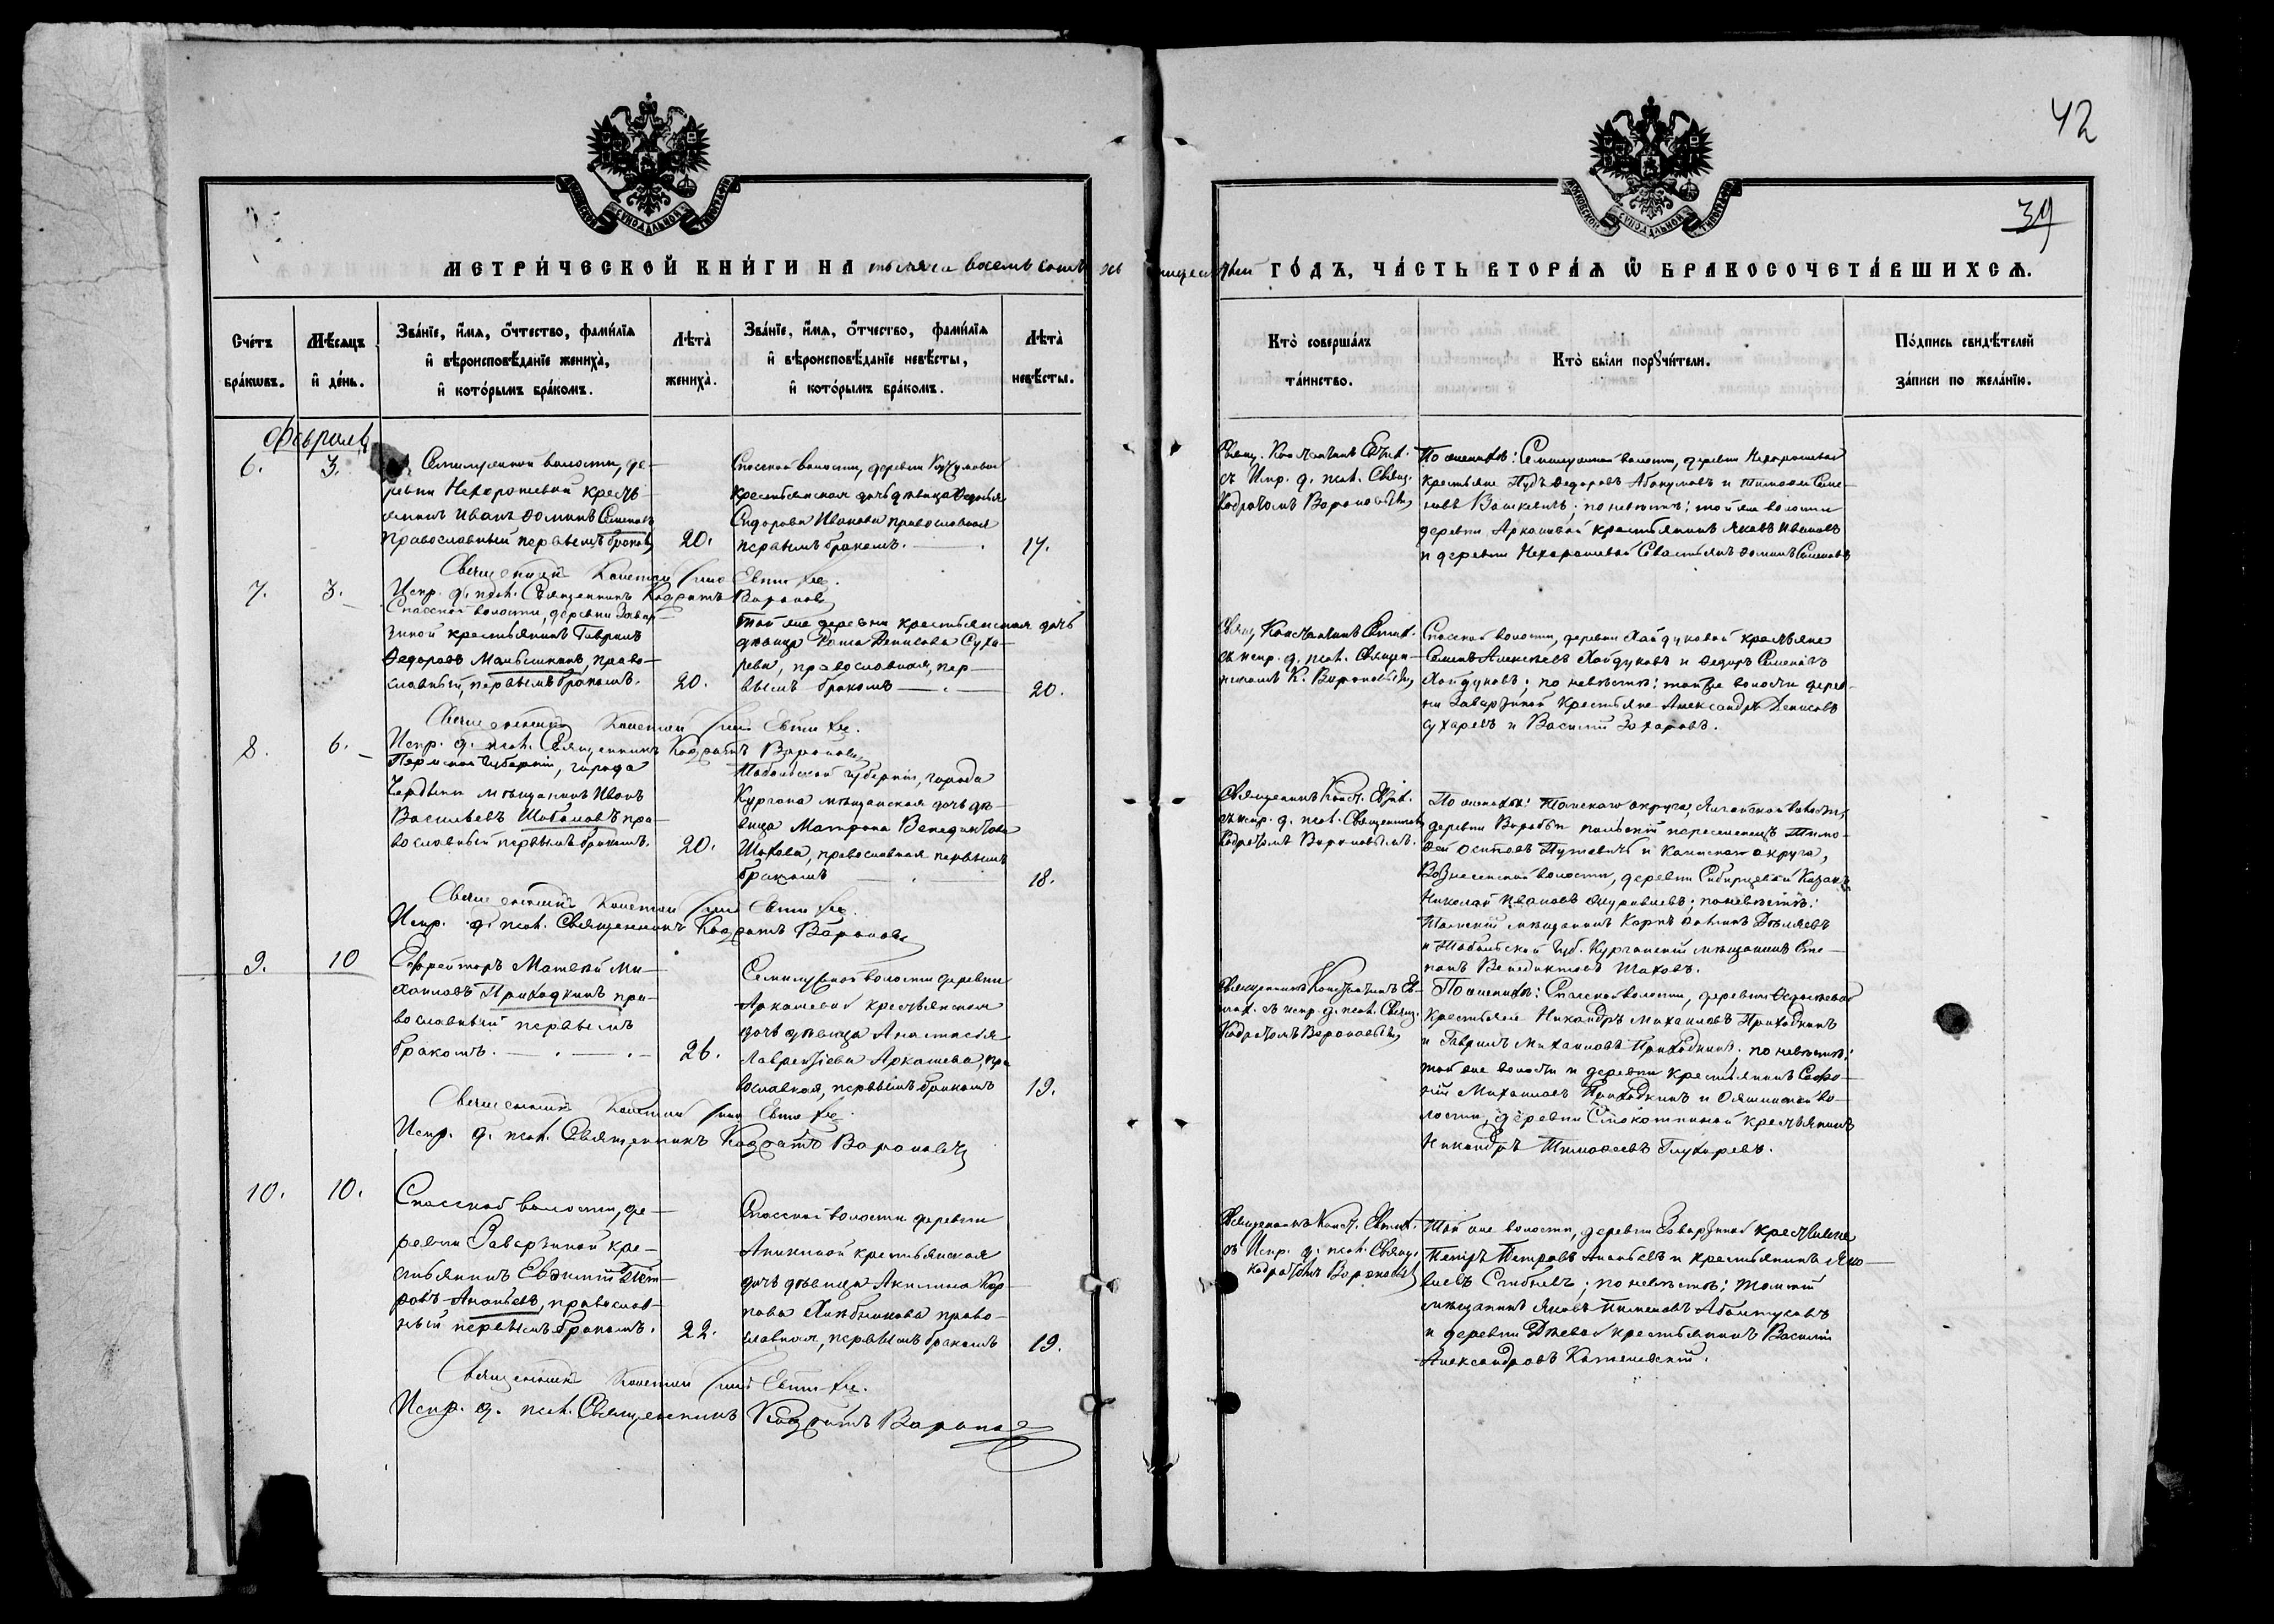 42
39
МЕТРИЧЕСКОЙ КНИГИ НА тысяча восемьсотъ
ГОДЪ, ЧАСТЬ ВТОРАЯ Ѿ БРАКОСОЧЕТАВШИХСЯ.
Счетъ браковъ.
Мѣсяцъ и день.
Званіе, имя, отчество, фамилія и вѣроисповѣданіе жениха, и которымъ бракомъ.
Лѣта жениха.
Званіе, имя, отчество, фамилія и вѣроисповѣданіе невѣсты, и которымъ бракомъ.
Лѣта невѣсты.
Кто совершалъ таинство.
Кто были поручители.
Подпись свидѣтелей записи по желанію.
Февраль
6.
3.
Семилужной волости, де-
ревни Нехорошевой кресть-
янинъ Иванъ Ѳоминъ Семеновъ
православный первымъ бракомъ
20.
Спасской волости, деревни
крестьянская дочь дѣвица Ѳедосья
Сидорова Иванова православная
первымъ бракомъ.
17.
Свящ. Константинъ Евтих.
съ Испр. д. псал. Свящ.
Кодратомъ Вороновымъ
По женихѣ: Семилужной волости, деревни Нехорошевой
крестьяне Ѳедоровъ Абакумовъ и Тимоѳей Семе-
новъ; по невѣстѣ: той же волости
деревни Аркашевой крестьянинъ Яковъ Ивановъ
и деревни Нехорошевой Севастьянъ Ѳоминъ Семеновъ
Священникъ Константинъ Евтих
Испр. д. псал. Священникъ Кодратъ Вороновъ
7.
3.
Спасской волости, деревни Завар-
зиной крестьянинъ Гавріилъ
Ѳедоровъ Малышкинъ, право-
славный, первымъ бракомъ.
20.
Той же деревни крестьянская дочь
дѣвица Денисова Суха-
рева, православная, пер-
вымъ бракомъ
20.
Свящ. Константинъ Евтих.
съ испр. д. псал. Священ-
никомъ К. Вороновымъ
Спасской волости, деревни Хайдуковой крестьяне
Семенъ Алексѣевъ Хайдуковъ и Ѳедоръ Семеновъ
Хайдуковъ; по невѣстѣ: той же волости дерев-
ни Заварзиной крестьяне Александръ Денисовъ
Сухаревъ и Василій Захаровъ.
Священникъ Константинъ Евтих
Испр. д. псал. Священникъ Кодратъ Вороновъ
8.
6.
Пермской губерніи, города
Чердыни мѣщанинъ Иванъ
Васильевъ Шабаловъ пра-
вославный первымъ бракомъ.
20.
Тобольской губерніи, города
Кургана мѣщанская дочь дѣ-
вица Матрона Венедиктова
Шахова, православная первымъ
бракомъ
18.
Священникъ Конст. Евтих.
съ испр. д. псал. Священникомъ
Кодратомъ Вороновымъ.
По женихѣ: Томскаго округа, волости,
деревни польскій переселенецъ Тимо-
ѳей Осиповъ и Каинскаго округа,
Вознесенской волости, деревни
Николай Ивановъ; по невѣстѣ:
Томскій мѣщанинъ Карпъ
и Тобольской губ. Курганскій мѣщанинъ Сте-
панъ Венедиктовъ Шаховъ.
Священникъ Константинъ Евтих
Испр. д. псал. Священникъ Кодратъ Вороновъ
9.
10
Ефрейторъ Матвѣй Ми-
хаиловъ Приходкинъ пра-
вославный первымъ
бракомъ.
26.
Семилужной волости деревни
Аркашевой крестьянская
дочь дѣвица Анастасія
Лаврентіева Аркашева, пра
вославная, первымъ бракомъ
19.
Священникъ Константинъ Ев-
тих. съ испр. д. псал. Свящ.
Кодратомъ Вороновымъ
По женихѣ: Спасской волости, деревни
крестьяне Никандръ Михаиловъ Приходкинъ
и Гавріилъ Михаиловъ Приходкинъ; по невѣстѣ:
той же волости и деревни крестьянинъ Софо-
ній Михаиловъ Приходкинъ и во-
лости, деревни крестьянинъ
Никандръ Тимоѳеевъ Глухаревъ.
Священникъ Константинъ Евтих
Испр. д. псал. Священникъ Кодратъ Вороновъ
10.
10.
Спасской волости, де-
ревни Заварзиной кре-
стьянинъ Евдокимъ Пет-
ровъ Ананьевъ, православ-
ный первымъ бракомъ.
22.
Спасской волости деревни
Аникиной крестьянская
дочь дѣвица Акилина Кар-
пова Хлѣбникова право-
славная, первымъ бракомъ
19.
Священникъ Конст. Евтих.
съ Испр. д. псал. Свящ.
Кодратомъ Вороновымъ
Той же волости, деревни Заварзиной крестьяне
Петръ Петровъ Ананьевъ и крестьянинъ Яко-
влевъ; по невѣстѣ: Томскій
мѣщанинъ Яковъ Пименовъ
и деревни крестьянинъ Василій
Александровъ.
Священникъ Константинъ Евтих
Испр. д. псал. Священникъ Кодратъ Вороновъ